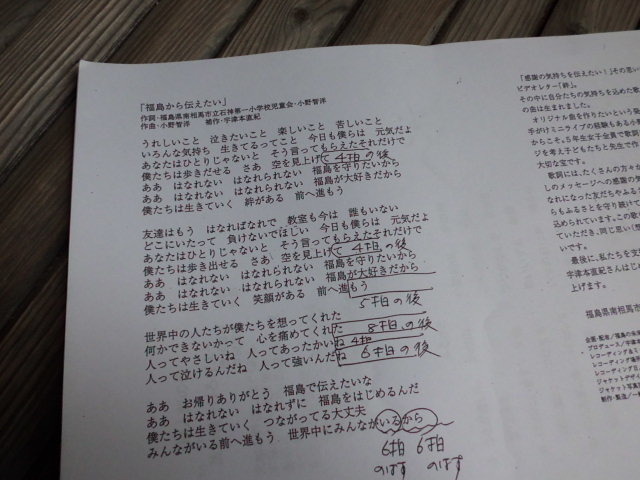 「福島から伝えたい」
作詞・福島県南相馬市立石神第一小学校児童会・小野智洋
作曲・小野智洋　補作・宇津本直紀
うれしいこと　泣きたいこと　楽しいこと　苦しいこと
いろんな気持ち　生きてるってこと　今日も僕らは　元気だよ
あなたはひとりじゃないと　そう言ってもらえたそれだけで
僕たちは歩きだせる　さあ　空を見上げて 4拍の後
ああ　はなれない　はなれられない　福島を守りたいから
ああ　はなれない　はなれられない　福島が大好きだから
僕たちは生きていく　絆がある　前へ進もう
友達はもう　はなればなれで　教室も今は　誰もいない
どこにいたって　負けないでほしい　今日も僕らは　元気だよ
あなたはひとりじゃないと　そう言ってもらえたそれだけで
僕たちは歩き出せる　さあ　空を見上げて 4拍の後
ああ　はなれない　はなれられない　福島を守りたいから
ああ　はなれない　はなれられない　福島が大好きだから
僕たちは生きていく　笑顔がある　前へ進もう
5拍の後
世界中の人たちが僕たちを想ってくれた
何かできないかって　心を痛めてくれた 8拍の後
人ってやさしいね　人ってあったかいね 4拍
人って泣けるんだね　人って強いんだね 6拍の後
ああ　お帰りありがとう　福島で伝えたいな
ああ　はなれない　はなれずに　福島をはじめるんだ
僕たちは生きていく　つながってる大丈夫
みんながいる前へ進もう　世界中にみんながいるから
6拍　6拍
のばす　のばす
「感謝の気持ちを伝えたい！」その思い
ビデオレター「絆」。
その中に自分たちの気持ちを込めた歌
の曲は生まれました。
オリジナル曲を作りたいという発
手がけミニライブの経験もある小野
からこそ。5年生女子全員で歌詞
ジを考え子どもたちと先生で作
大切な宝です。
歌詞には、たくさんの方々か
しのメッセージへの感謝の気
なれになった友だちや
らもふるさとを守り続けて
込められています。この歌
ていただき、同じ思い
いです。
最後に、私たちを支
宇津本直紀さんはじ
上げます。
福島県南相馬市